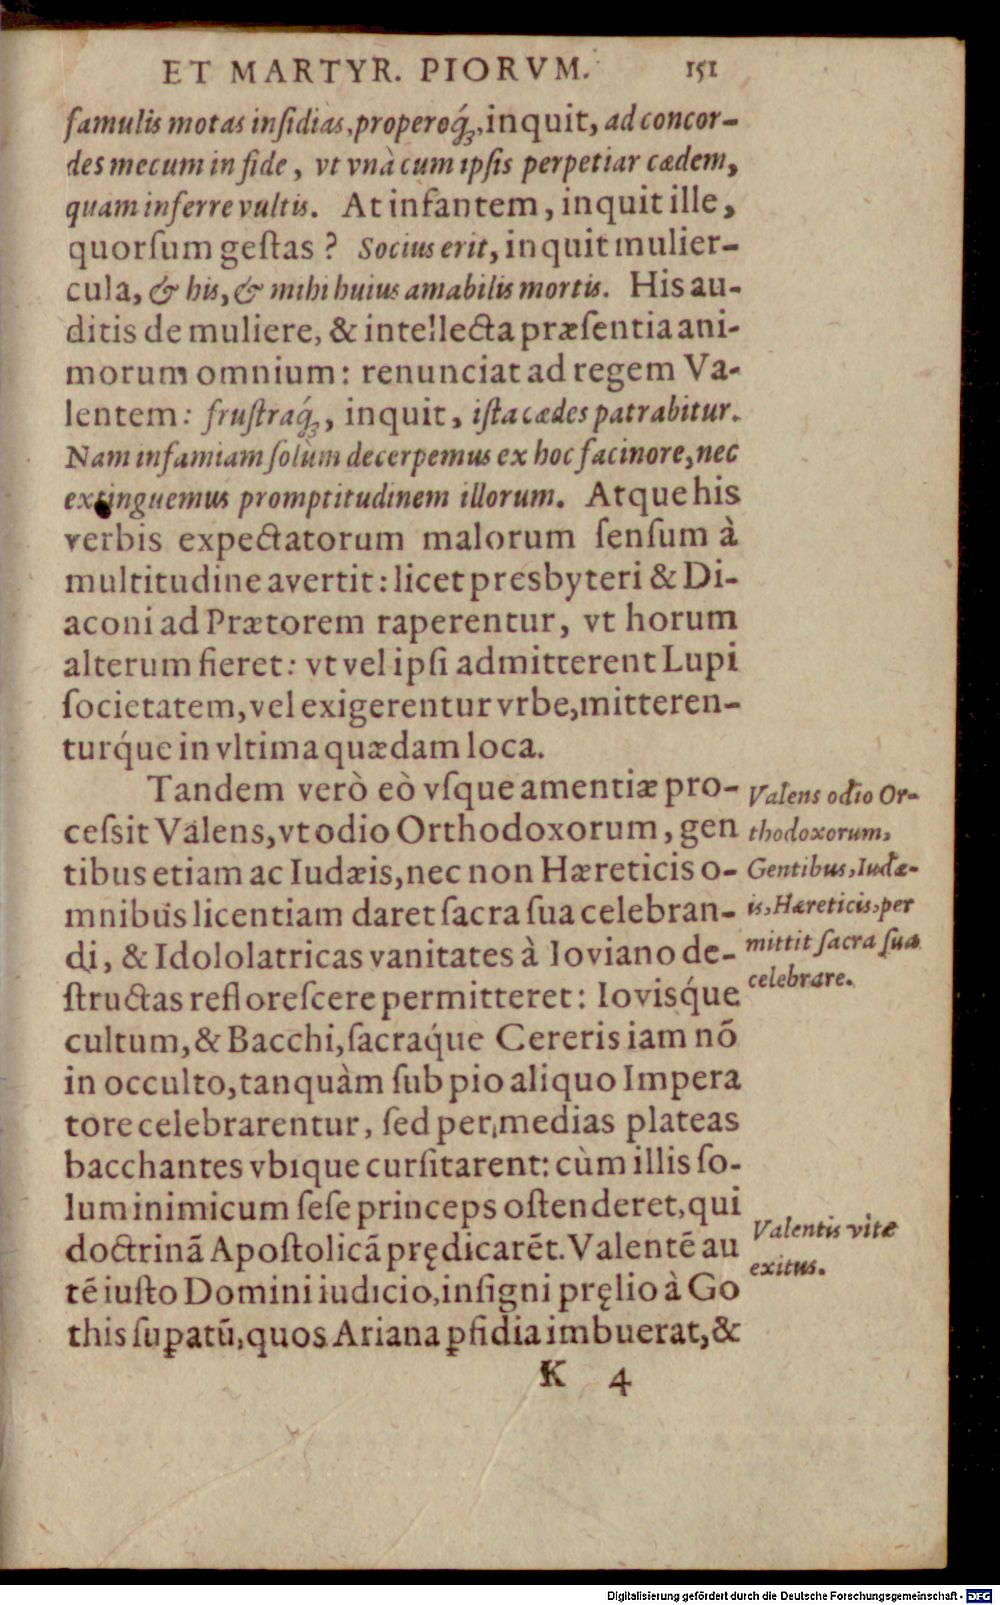 ET MARTYR. PIORVM. 151
famulis motas inſidias, properoq́ꝫ, inquit, ad concor-
des mecum in fide, vt vnà cum ipſis perpetiar cædem,
quam inferre vultis. At infantem, inquit ille,
quorſum geſtas? Socius erit, inquit mulier-
cula, & his, & mihi huius amabilis mortis. His au-
ditis de muliere, & intellecta præſentia ani-
morum omnium: renunciat ad regem Va-
lentem: fruſtraq́ꝫ, inquit, iſta cædes patrabitur.
Nam infamiam ſolùm decerpemus ex hoc facinore, nec
extinguemus promptitudinem illorum. Atque his
verbis expectatorum malorum ſenſum à
multitudine avertit: licet presbyteri & Di-
aconi ad Prætorem raperentur, vt horum
alterum fieret: vt vel ipſi admitterent Lupi
ſocietatem, vel exigerentur vrbe, mitteren-
turq́ue in vltima quædam loca.
Tandem verò eò vſque amentiæ pro-
ceſsit Valens, vt odio Orthodoxorum, gen
tibus etiam ac Iudæis, nec non Hæreticis o-
mnibus licentiam daret ſacra ſua celebran-
di, & Idololatricas vanitates à Ioviano de-
ſtructas refloreſcere permitteret: Iovisq́ue
cultum, & Bacchi, ſacraq́ue Cereris iam nõ
in occulto, tanquàm ſub pio aliquo Impera
tore celebrarentur, ſed per medias plateas
bacchantes vbique curſitarent: cùm illis ſo-
lum inimicum ſeſe princeps oſtenderet, qui
doctrinã Apoſtolicã prędicarēt. Valentē au
tē iuſto Domini iudicio, inſigni pręlio à Go
this ſuꝑatū, quos Ariana ꝑfidia imbuerat, &
K 4
Valens odio Or-
thodoxorum,
Gentibus, Iudæ-
is, Hæreticis, per
mittit ſacra ſua
celebrare.
Valentis vitæ
exitus.
Digitalisierung gefördert durch die Deutsche Forschungsgemeinschaft - DFG